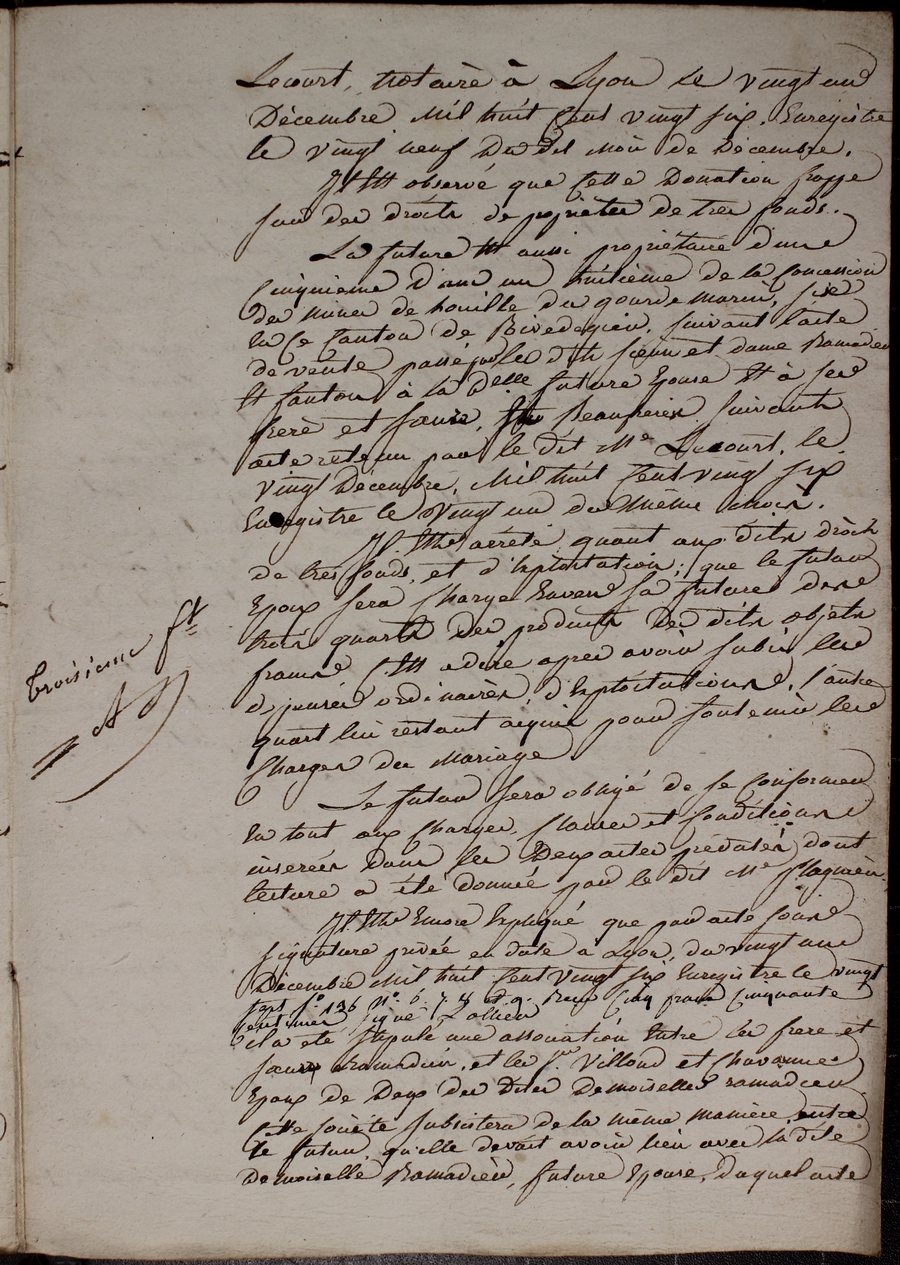 Lecourt, notaire à Lyon le vingt un
Décembre mil huit Cent vingt six. Enregistré
le vingt neuf du dit mois de Décembre.
Il Est observé que Cette Donation frappe
sur des droits de propriétés de tres fonds.
La future Est aussi propriétaire d'une
Cinquieme d'un huitieme de la Concession
des mines de houille du gourd Marin, sise
En Ce Canton de Rivedegier, suivant l'acte
de vente passé par les dits sieur et dame Ramadier
Et fanton à la delle future Epouse Et à ses
frere et sœurs, Beaufreres suivant
acte retenu par le dit Me Lecourt, le
vingt Décembre, mil huit Cent vingt six
Enregistré le vingt un du même mois.
Il Est arrété quant aux dits droits
de tres fonds, et d'Exploitation; que le futur
Epoux sera Chargé Envers sa future des
trois quarts des produits des dits objets
francs C'Est adire aprés avoir subis les
dépenses ordinaires d'Exploitations, l'autre
quart lui restant acquis pour soutenir les
Charges du Mariage
Le futur sera obligé de se Conformer
En tout aux Charges, Clauses et Conditions
inserées dans les Deux actes précités dont
lecture a été donnée par le dit Me Flagnieu
Il Est Encore Expliqué que par acte sous
signature privée en date à Lyon, du vingt un
Décembre mil huit Cent vingt six Enregistré le vingt
sept fo. 136 No. 6. 7. 8 et 9. Reçu Cinq francs Cinquante
centimes signé Lollieu
il a été stipulé une association Entre les frere et
sœurs Ramadier, et les srs. Villond et Chavanne
Epoux de Deux des Dites Demoiselles ramadier
Cette société subsistera de la même manière entre
le futur, qu'elle devait avoir lieu avec la dite
Demoiselle Ramadier, future Epouse, Duquel acte
Troisieme ft